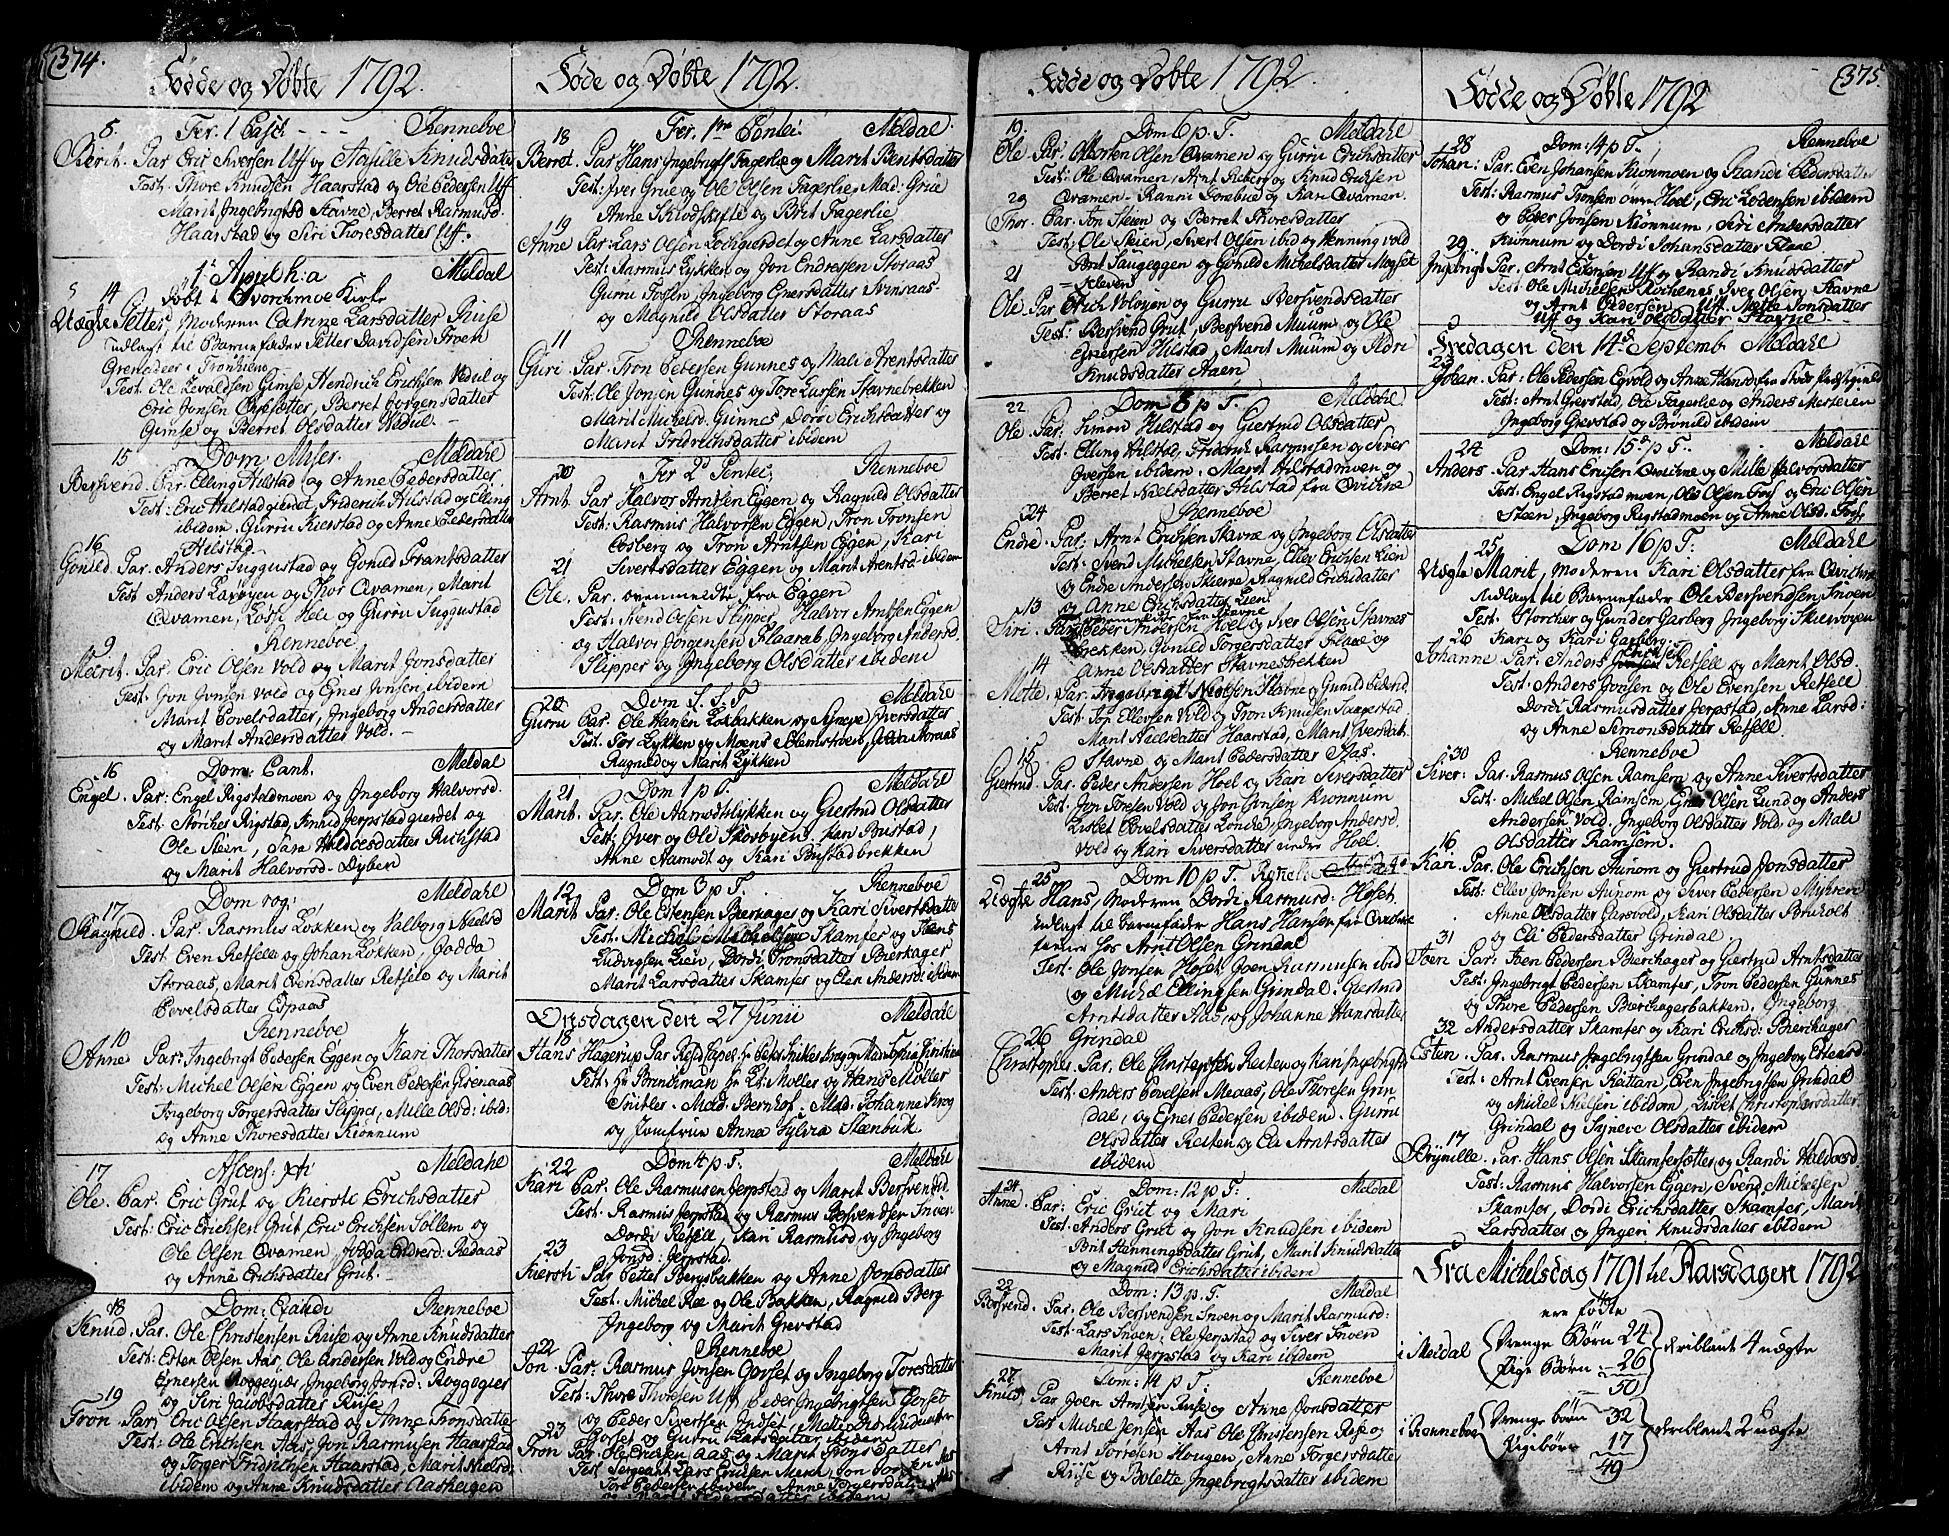 374.
Fødde og Døbte 1792.
8. Fer. 1 Pasch. - - - Renneboe
Berit. Par Eric Siversen Uff og Knudsdatt
Test. Thore Knudsen Haarstad og Ole Pedersen Uff
Marit Ingebrigtsd Stavne, Berret Rasmusd.
Haarstad og Siri Thoresdatter Uff.
1. April h:a Meldal
14 Døbt i Kirke
Uægte Petter, Moderen Catrine Larsdatter Ruse
udlagt til Barnefader Petter Davidsen Troen
Grenadeer i Tronhiem
Test. Ole Evaldsen Gimse Hendrich Erichsen Vedul og
Eric Jonsen, Berret Jørgensdatter
Gimse og Berret Olsdatter Vedul. -
15 Dom. Miser. Meldahl
Bersvend. Par. Elling Hilstad og Anne Pedersdatter.
Test: Eric Hilstadgierdet, Friderik Hilstad og Elling
ibidem, Gurru Kierstad og Anne Pedersdatter
Hilstad.
16
Gonild. Par. Anders Juggustad og Gonild Frantsdatter
Test Anders Lavøyen og Thor Qvamen, Marit
Qvamen, Losse Heli og Gurru Juggustad
9 Renneboe
Marit. Par. Eric Olsen Vold og Marit Jonsdatter
Test. Jon Jonsen Vold og Egnes Jonsen ibidem
Marit Povelsdatter, Ingeborg Andersdatter
og Marit Andersdatter Vold. -
16 Dom: Cant. Meldal
Engel. Par: Engel Rigstadmoen og Ingeborg Halvorsd.
Test. Størcher Rigstad, Knud Jerpstadgierdet og
Ole Steen, Sara Haldoesdatter Richstad
og Marit Halvorsd. Dyben
17 Dom rog: Meldahl
Ragnild. Par. Rasmus Løkken og Valborg Nielsd
Test. Even Retsele og Johan Løkken, Gadda
Storaas, Marit Evensdatter Retsele og Marit
Povelsdatter Espaas
10 Renneboe
Anne Par. Ingebrigt Pedersen Eggen og Kari Thorsdatter
Test: Michel Olsen Eggen og Even Pedersen Gisenaas
Ingeborg Torgersdatter Slipper, Mille Olsd: ibid:
og Anne Thoresdatter Kiønnum
17 Ascens: Meldahl
Ole. Par. Eric Grut og Kiersti Erichsdatter
Test: Eric Erichsen Grut, Eric Erichsen Sollem og
Ole Olsen Qvamen, Jødda Endresd: Redaas
og Anne Erichsdatter Grut. -
18 Dom: Exaudi Renneboe
Knud. Par. Ole Christensen Ruse og Anne Knudsdatter
Test: Esten Olsen Aas, Ole Andersen Vold og Endre
Egnersen Roggegiær, Ingeborg Jonsd: Roggegier
19 og Siri Jacobsdatter Ruse
Tron Par: Eric Olsen Haarstad og Anne Tronsdatter
Test: Ole Erichsen Aas, Jon Rasmusen Haarstad
og Torger Fridrichsen Haarstad, Marit Nielsd:
ibidem og Anne Knudsdatter Aashaugen
Føde og Døbte 1792.
18 Fer. 1me Pentec: Meldal.
Berret. Par. Hans Ingebrigtsen Fagerlie og Marit Bentsdatter
Test: Iver Grue og Ole Olsen Fagerlie, Mad: Grue
Anne Skiodskifte og Brit Fagerlie
19
Anne Par: Lars Olsen Lochgierdet og Anne Larsdatter
Test: Rasmus Lykken og Jon Endressen Storaas
Gurru Fossen, Ingeborg Egnersdatter Svinsaas
og Magnild Olsdatter Storaas
11 Renneboe
Guri Par: Tron Pedersen Gunnes og Mali Arentsdatter
Test. Ole Jonsen Gunnes og Tore Larsen Stavnebrekken
Marit Michelsd. Gunnes, Dordi Erichsdatter og
Marit Fridrichsdatter ibidem
20 Fer 2d Pentec: Renneboe
Arnt. Par Halvor Arntsen Eggen og Ragnild Olsdatter
Test: Rasmus Halvorsen Eggen, Tron Tronsen
Cosberg og Tron Arntsen Eggen, Kari
21 Sivertsdatter Eggen og Marit Arentsd: ibidem
Ole. Par. ovenmeldte fra Eggen
Test: Svend Olsen Slipper Halvor Arntsen Eggen
og Halvor Jørgensen Flaarab, Ingeborg Andersd.
Slipper og Ingeborg Olsdatter ibidem
20 Dom S. S. T Meldahl
Gurru Par: Ole Hansen Løkbakken og Synevve Iversdatter
Test: For Lykken og Moens Solemstroen, Gadda Storaas
Ragnild og Marit Lykken
21 Dom 1 p T. Meldahl
Marit. Par. Ole Aamodtslykken og Giertrud Olsdatter
Test: Iver og Ole Skorbyen, Kari Bustad,
Anne Aamodt og Kari Bustadbrekken
12 Dom 3 p T. Renneboe
Marit Par: Ole Estensen Bierkager og Kari Sivertsdatter
Test: Michel Michelsen Skamfer og Steens
Ludvigsen Lien, Dordi Tronsdatter Bierkager
Marit Larsdatter Skamfer og Elen Andersd: ibidem
Onsdagen den 27 Junii Meldahl
18
Hans Hagerup Par Resid. Capel. Hr. Peder Snitler Krag og Mad: Sophia Christina
Test: Hr Brendsman Hr Lt: Møller og Hans Møller
Snitler. Mad: Bernhof. Mad: Johanne Krog
og Jomfrue Anna Sylvia Steenbuk
22 Dom 4 p T. Meldahl
Kari Par: Ole Rasmusen Jerpstad og Marit Bersvendsd.
Test: Rasmus Jerpstad og Rasmus Bersvendsen Inver
Dordi Retsell, Kari Rasmusd og Ingeborg
23 Jonsd: Jerpstad.
Kiersti Par Petter Bergsbakken og Anne Jonsdatter
Test: Michel Ree og Ole Bakken, Ragnild Berg
Ingeborg og Marit Grevstad
22 Renneboe
Jon. Par: Rasmus Jonsen Gorset og Ingeborg Toresdatter
Test: Thore Thoresen Uff, Peder Ingebrigtsen Gorset
og Peder Sivertsen Indset, Mette
23 Gorset og Gurru Larsdatter ibidem
Tron Par: Ole Erichsen Aas og Marit Tronsdatter
Test. Sergeant Lars Erichsen Merch, Jon Torgersen Aas
Tore Pedersen ibidem, Anne Torgersdatter
og Marit Pedersdatter ibidem
Fødde og Døbte 1792.
19. Dom 6 p. T. Meldahl
Ole Par: Morten Olsen Qvamen og Gurru Erichsdatter
Test: Ole Qvamen, Arnt Resberg og Knud Erichsen
29 Qvamen. Ranni Gorsbue og Kari Qvamen.
Thor. Par. Jon Skeien og Berret Thoresdatter
Test. Ole Skeien, Sivert Olsen ibid og Henning Vold
21 Brit Haugeggen og Gonild Michelsdatter Moeset
Kleven
Ole Par Erich Voloyen og Gurru Bersvendsdatter
Test: Bersvend Grut, Bersvend Muum og Ole
Egnersen Hilstad, Marit Muum og Aldri
Knudsdatter Aaen
22 Dom 8 p T. Meldahl
Ole Par: Simon Hilstad og Giertrud Olsdatter
Test. Elling Hilstad, Friderik Rasmusen og Siver
Iversen ibidem. Marit Hilstadmoen og
Berret Nielsdatter Hilstad fra Qvichne
24 Renneboe
Endre. Par: Arnt Erichsen Stavne og Ingeborg Olsdatter
Test: Svend Michelsen Stavne, Ellev Erichsen Lien
og Endre Andersen Skierve Ragnild Erichsdatter
13 og Anne Erichsdatter Lien
Siri Par: Peder Andersen Hoel og Siver Olsen Stavnes
brekken, Gonild Torgersdatter Flaae og
14 Anne Olsdatter Stavnesbrekken
Mette. Par. Ingebrigt Nielsen Stavne og Gunild Pedersd.
Test. Jon Ellevsen Vold og Tron Knudsen Saagestad
Marit Nielsdatter Haarstad, Marit Iversdatt.
15 Stavne og Marit Pedersdatter Aas.
Giertrud Par. Peder Andersen Hoel og Kari Siversdatter
Test. Jon Toresen Vold og Jon Jonsen Kronnum
Lisbet Povelsdatter Londre, Ingeborg Andersd.
Vold og Kari Siversdatter indre Hoel.
25 Dom 10 p T. Renneb
Uægte Hans, Moderen Dordi Rasmusd: Hoset
udlagt til barnefader Hans Hansen fra Qvichne
tienner hos Arnt Olsen Grindal
Test. Ole Jonsen Hoset, Joen Rasmusen ibid
og Michel Ellingsen Grindal. Giertrud
Arntsdatter Aas, og Johanne Hansdatter
26 Grindal
Christopher. Par. Ole Christophersen Resten og Kari Ingebrigtsd
Test: Anders Povelsen Meaas, Ole Thoresen Grin
dal, og Egnes Pedersen ibidem. Gurru
Olsdatter Resten og Eli Arntsdatter
ibidem
24 Dom: 12 p T: Meldal
Anne Par: Eric Grut og Mari
Test. Anders Grut og Jon Knudsen ibidem
Brit Henningsdatter Grut, Marit Knudsdatter
og Magnild Erichsdatter ibidem
22 Dom: 13 p. T Meldal
Bersvend. Par. Ole Bersvendsen Snoen og Marit Rasmusd:
Test: Lars Snoen, Ole Jerpstad og Siver Snoen
Marit Jerpstad og Kari ibidem
27 Dom: 14 p T. Renneboe
Knud Par Joen Arntsen Ruse og Anne Jonsdatter
Test Michel Jensen Aas Ole Christensen Ruse og
Arnt Torresen Hougen, Anne Torgersdatter
Ruse og Bolette Ingebrigtsdatter ibidem
375.
Fødde og Døbte 1792
28 Dom: 14 p T. Renneboe
Johan: Par. Even Johansen Kiønmoen og Randi Pedersdatter
Test: Rasmus Tronsen Hoel, Eric Lodensen ibidem
og Peder Jonsen Kiønnum, Siri Andersdatter
29. Kiønnum og Dordi Johansdatter Flaae
Ingebrigt Par. Arnt Evensen Uff og Randi Knudsdatter
Test. Ole Michelsen, Iver Olsen Stavne
og Arnt Pedersen Uff. Mette Jonsdatter
Uff og Kari Olsdatter Stavne -
Fredagen den 14de Septemb Meldahl
23
Johan. Par: Ole Pedersen Egvold og Anne Hansd: fra
Test: Arnt Grevstad, Ole Fagerlie og Anders Mosteren
Ingeborg Grevstad og Bronild ibidem
24 Dom: 15 p T. Meldahl
Anders Par Hans Erichsen Qvichne og Mille Halvorsdatter
Test: Engel Rigstadmoen, Ole Olsen Foss og Eric Olsen
Steen, Ingeborg Rigstadmoen og Anne Olsd. Foss
25 Dom 16 p T: Meldahl
Uægte Marit, Moderen Kari Olsdatter fra Qvichne
Udlagt til Barnefader Ole Bersvendsen Snoen
Test: Storcher og Gunder Garberg Ingeborg Skiervøyen
26 Kari og Kari Garberg.
Johanne Par. Anders Erichsen Retsell og Marit Olsd.
Test: Anders Jonsen og Ole Evensen Retsell
Dordi Rasmusdatter Jerpstad, Anne Larsd:
og Anne Simonsdatter Retsell.
30 Renneboe
Siver: Par. Rasmus Olsen Ramsem og Anne Sivertsdatter
Test: Michel Olsen Ramsem, Egnes Olsen Lund og Anders
Andersen Vold, Ingeborg Olsdatter Vold, og Mali
16 Olsdatter Ramsem.
Kari Par. Ole Erichsen Aunom og Giertrud Jonsdatter
Test: Ellev Jonsen Aunom og Siver Pedersen Myhren
Anne Olsdatter Garsvold, Kari Olsdatter Bruholt
31 og Eli Pedersdatter Grindal
Steen Par: Sven Pedersen Bierchager og Giertrud Arntsdatter
Test: Ingebrigt Pedersen Skamfer, Tron Pedersen Gunnes
og Thore Pedersen Bierchagerbakken, Ingeborg
32 Andersdatter Skamfer og Kari Erichsd: Bierchager
Esten Par. Rasmus Ingebrigtsen Grindal og Ingeborg Estensd
Test: Arnt Evensen Rattan, Even Ingebrigtsen Grindal
og Michel Nielsen ibidem, Lisbet Christophersdatter
Grindal og Synneve Olsdatter ibidem
17
Brynille. Par. Hans Olsen Skamfersætter og Randi Haldoesd
Test: Rasmus Halvorsen Eggen, Svend Michelsen
Skamfer, Dordi Erichsdatter Skamfer, Marit
Larsdatter og Ingeri Knudsdatter ibidem
Fra Michelsdag 1791 til Aarsdagen 1792
ere fødte
i Meldal Drenge Børn 24 deriblant 4 uægte
Pige Børn - 26
50
i Renneboe Drenge børn 32 deriblant 2 uægte
Pigebørn 17
49